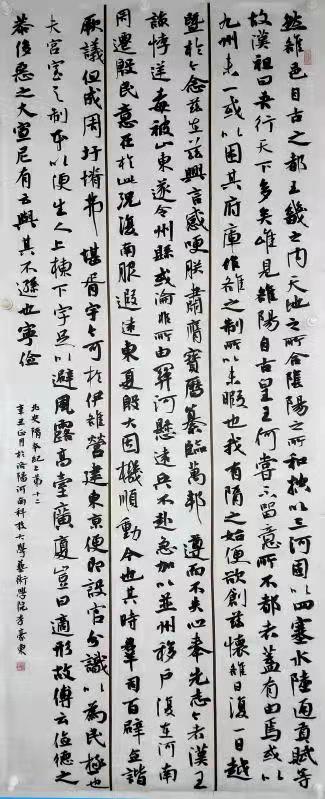 然雒邑自古之都王畿之內天地之所合陰陽之所和控以三河固以四塞水陸通貢賦等
故漢祖曰吾行天下多矣唯見雒陽自古皇王何嘗不留意所不都者蓋有由焉或以
九州未一或以困其府庫作雒之制所以未暇也我有隋之始便欲創茲懷雒日復一日越
暨於今念茲在茲興言感哽朕肅膺寶曆纂臨萬邦遵而不失心奉先志今者漢王
諒悖逆毒被山東遂令州縣或淪非所由關河懸遠兵不赴急加以並州移戶復在河南
周遷殷民意在於此況復南服遐遠東夏殷大因機順動今也其時羣司百辟僉諧
厥議但成周圩塉弗堪胥宇今可於伊雒營建東京便即設官分識以為民極也
夫宮室之制本以便生人上棟下宇足以避風露高臺廣廈豈曰適形故傅云儉德之
恭侈惡之大宣尼有云與其不遜也寧儉
北史隋本紀上第十二
辛丑正月於洛陽河南科技大學藝術學院李豪東